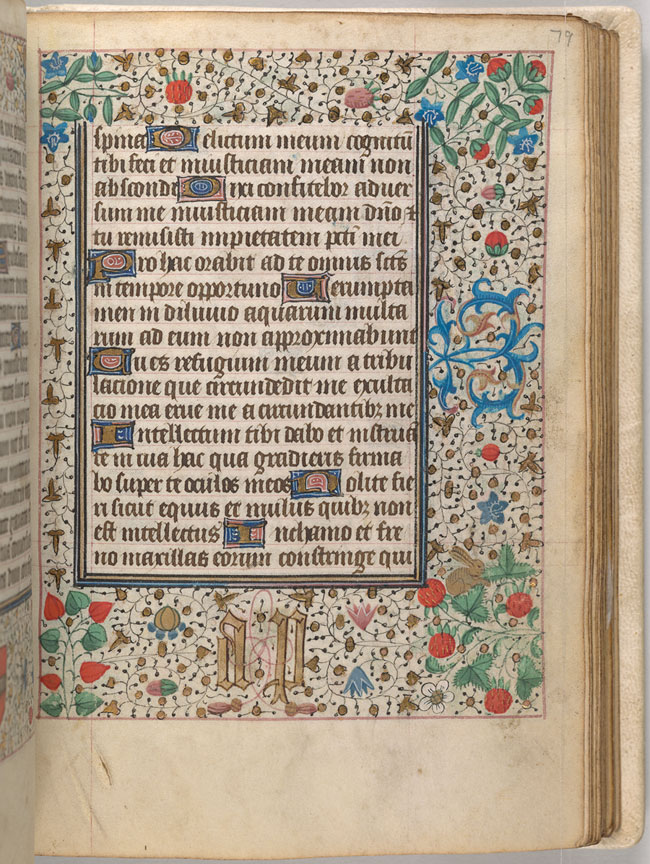 79
spina Delictum meum cognitu
tibi feci et iniusticiam meam non
abscondi Dixi confitebor aduer
sum me iniusticiam meam dño ⁊
tu remisisti impietatem pcti mei
Pro hac orabit ad te omnis scts
in tempore oportuno Uerumpta
men in diluuio aquarum multa
rum ad eum non approximabunt
Tu es refugium meum a tribu
lacione que circundedit me exulta
cio mea erue me a circundantibꝫ me
Intellectum tibi dabo et instruā
te in uia hac qua gradieris firma
bo super te oculos meos Nolite fie
ri sicut equus et mulus quibꝫ non
est intellectus In chamo et fre
no maxillas eorum constringe qui
d p